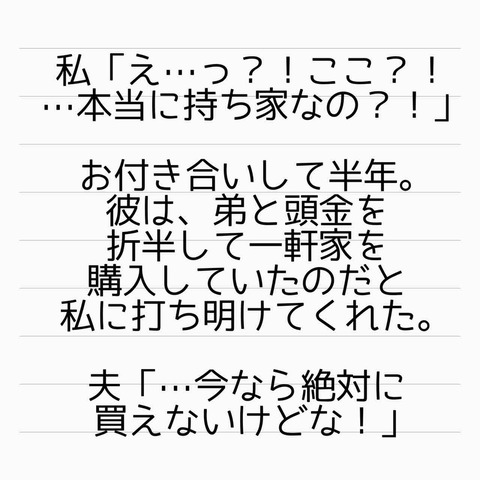 私「え…っ？！ここ？！
…本当に持ち家なの？！」
お付き合いして半年。
彼は、弟と頭金を
折半して一軒家を
購入していたのだと
私に打ち明けてくれた。
夫「…今なら絶対に
買えないけどな！」